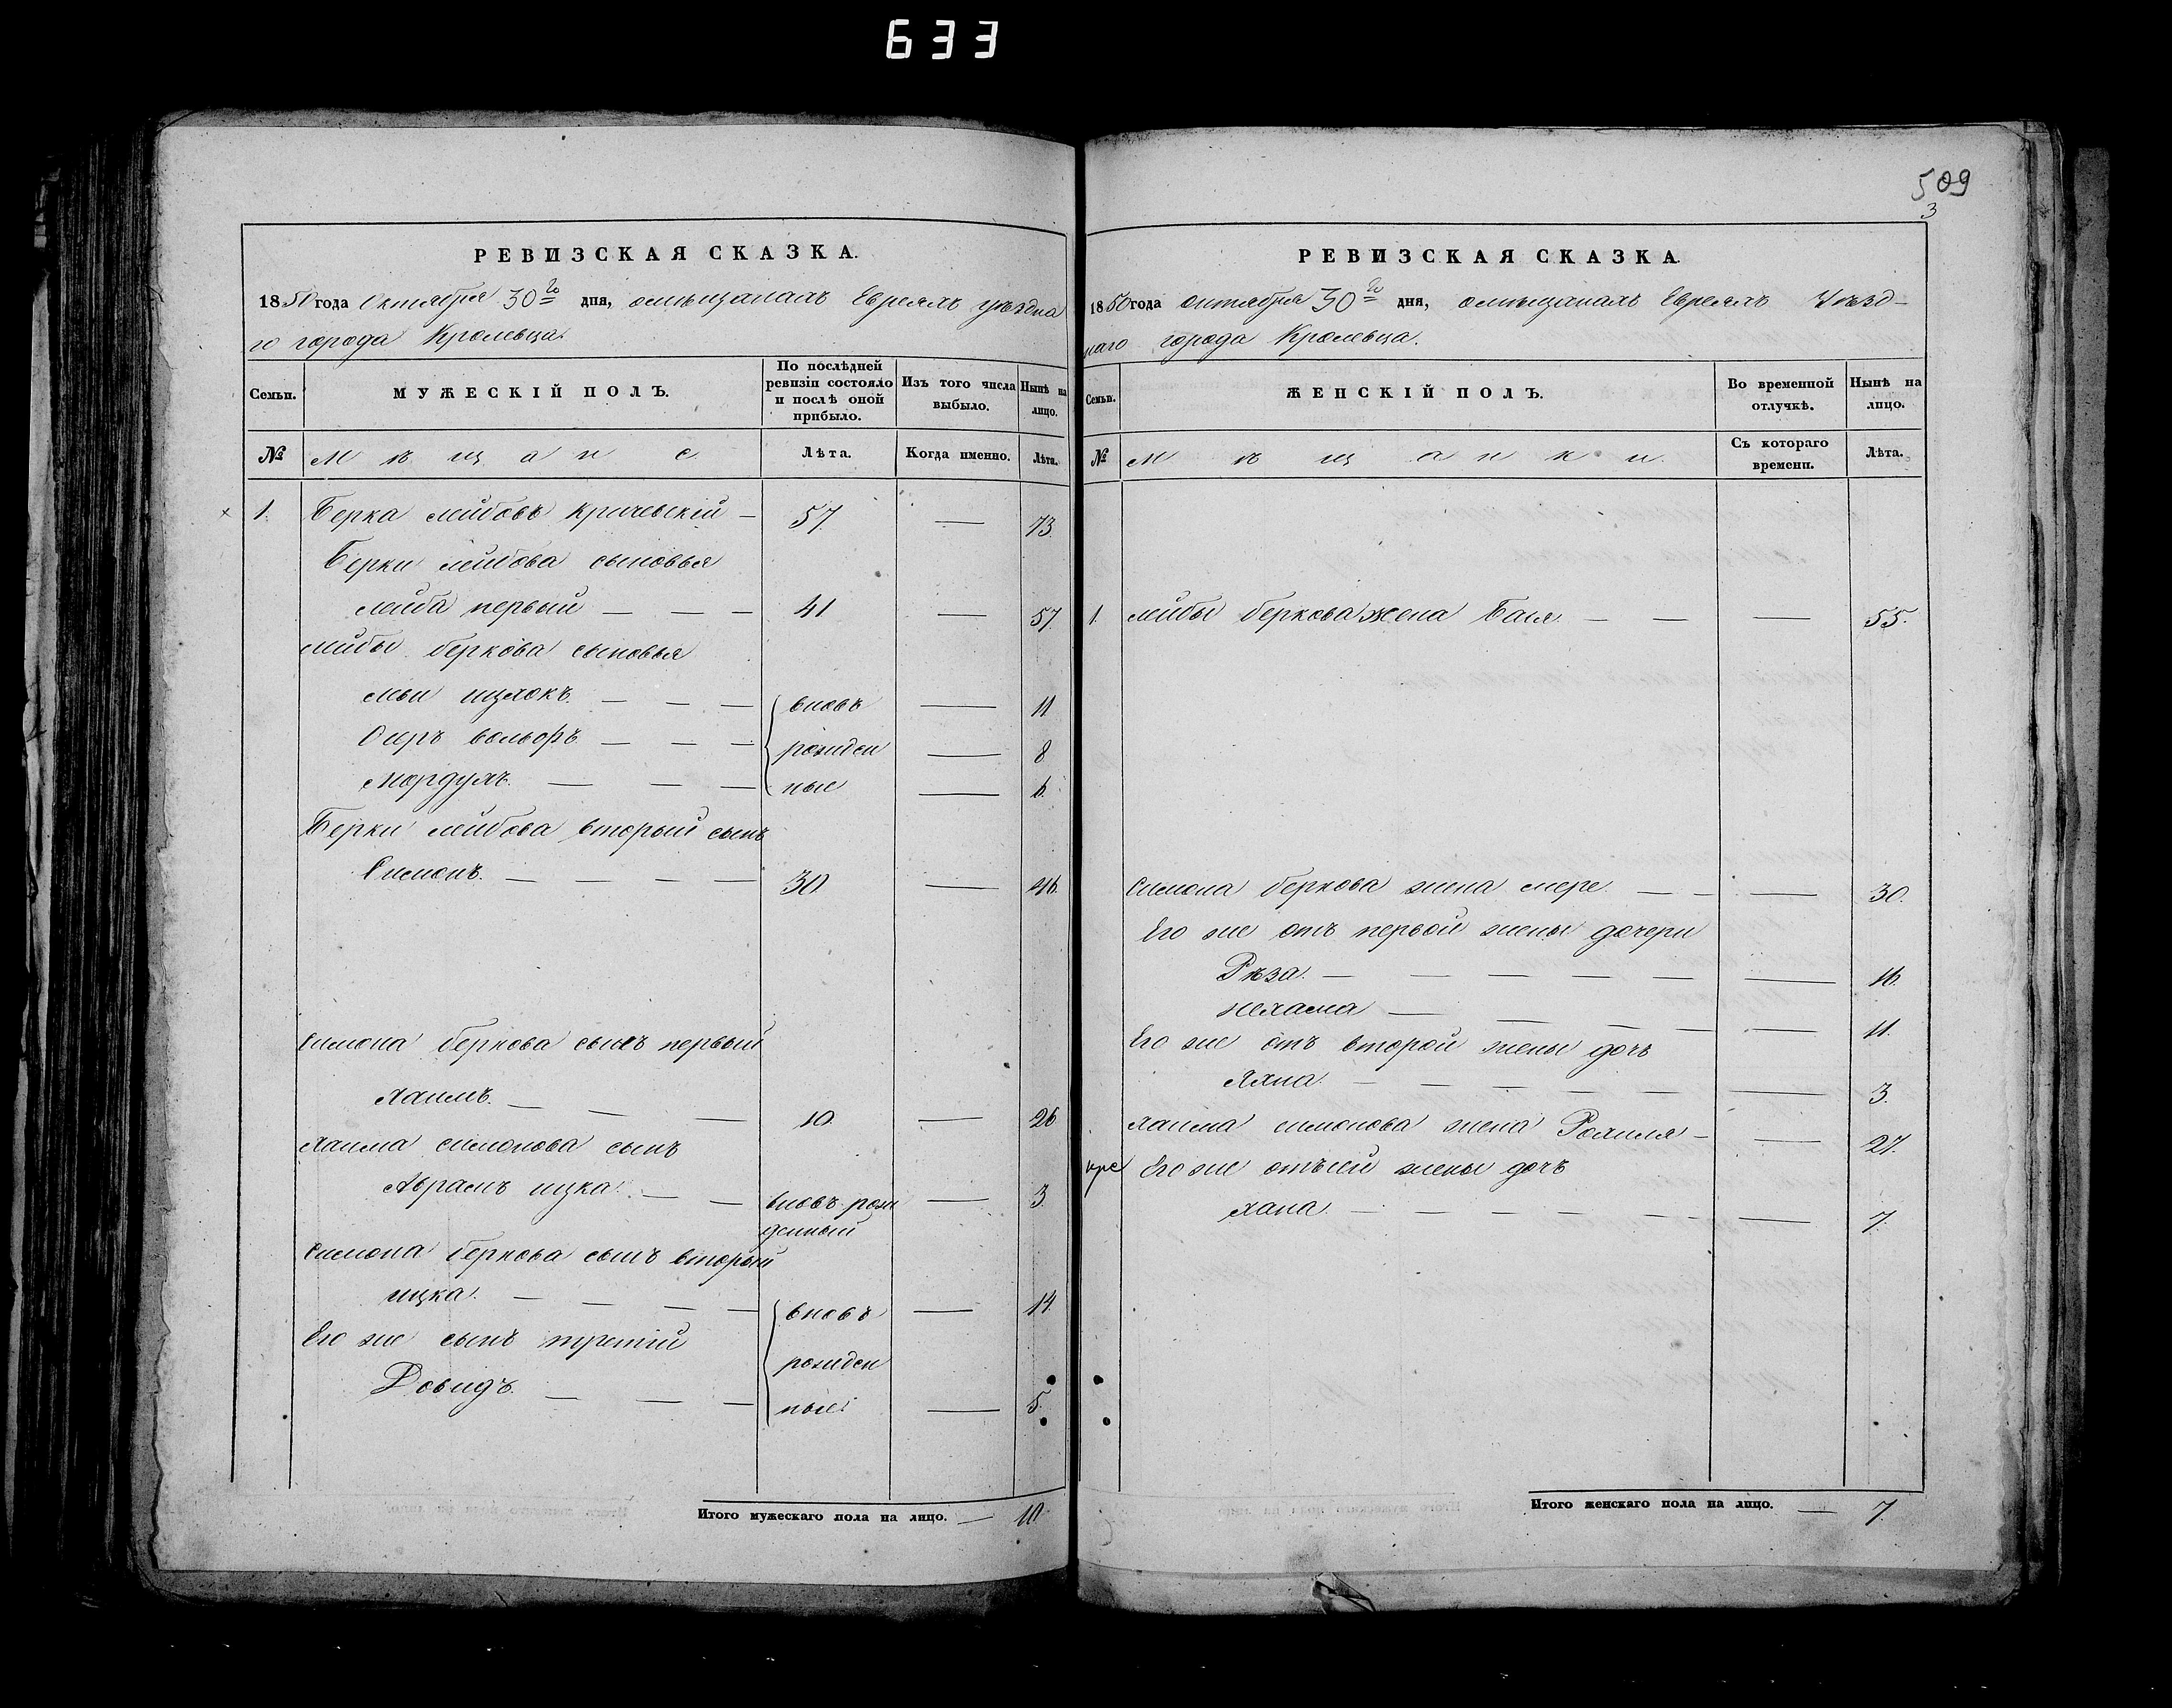 633
509
3
РЕВИЗСКАЯ СКАЗКА.
1850 года Октября 30го дня, омѣщанахъ Евреяхъ уѣздна
го города Кролевца.
Семьи.
МУЖЕСКІЙ ПОЛЪ.
По послѣдней ревизіи состояло и послѣ оной прибыло.
Изъ того числа выбыло.
Нынѣ на лицо.
№ Мѣщане Лѣта. Когда именно. Лѣта.
1. Берка Лейбовъ Кричевскій — 57. — 73.
Берки Лейбова сыновья
Лейба первый — — — 41 — 57.
Лейбы Беркова сыновья
— — — вновь — 11
Ошръ Вольфъ — — — рожден — 8
Мордухъ. — — — ные — 6.
Берки Лейбова вторый сынъ
Симонъ. — — — — 30 — 46.
Симона Беркова сынъ первый
Хаимъ. — — — 10. — 26
Хаима Симонова сынъ
Абрамъ Ицка. — — вновь рож — 3.
денный
Симона Беркова сынъ вторый
Ицка. — — — — вновь — 14.
Его же сынъ третій рожден
Довидъ. — — — ные — 5.
Итого мужескаго пола на лицо. — 10.
РЕВИЗСКАЯ СКАЗКА.
1850 года октября 30го дня, омѣщанахъ Евреяхъ Уѣзд-
наго города Кролевца.
Семьи.
ЖЕНСКІЙ ПОЛЪ.
Во временной отлучкѣ.
Нынѣ на лицо.
№ Мѣщанки. Съ котораго времени. Лѣта.
1. Лейбы Беркова жена Бася. — — — 55.
Симона Беркова жена Мере. — — — 30.
Его же отъ первой жены дочери
Рѣза. — — — — — — 16.
Нехама — — — — — 11.
Его же отъ второй жены дочь
Хяна. — — — — — — 3.
Хаима Симонова жена Рохиля — — 27.
Его же отъ сей жены дочь
Хана. — — — — — — 7.
Итого женскаго пола на лицо. — 7.